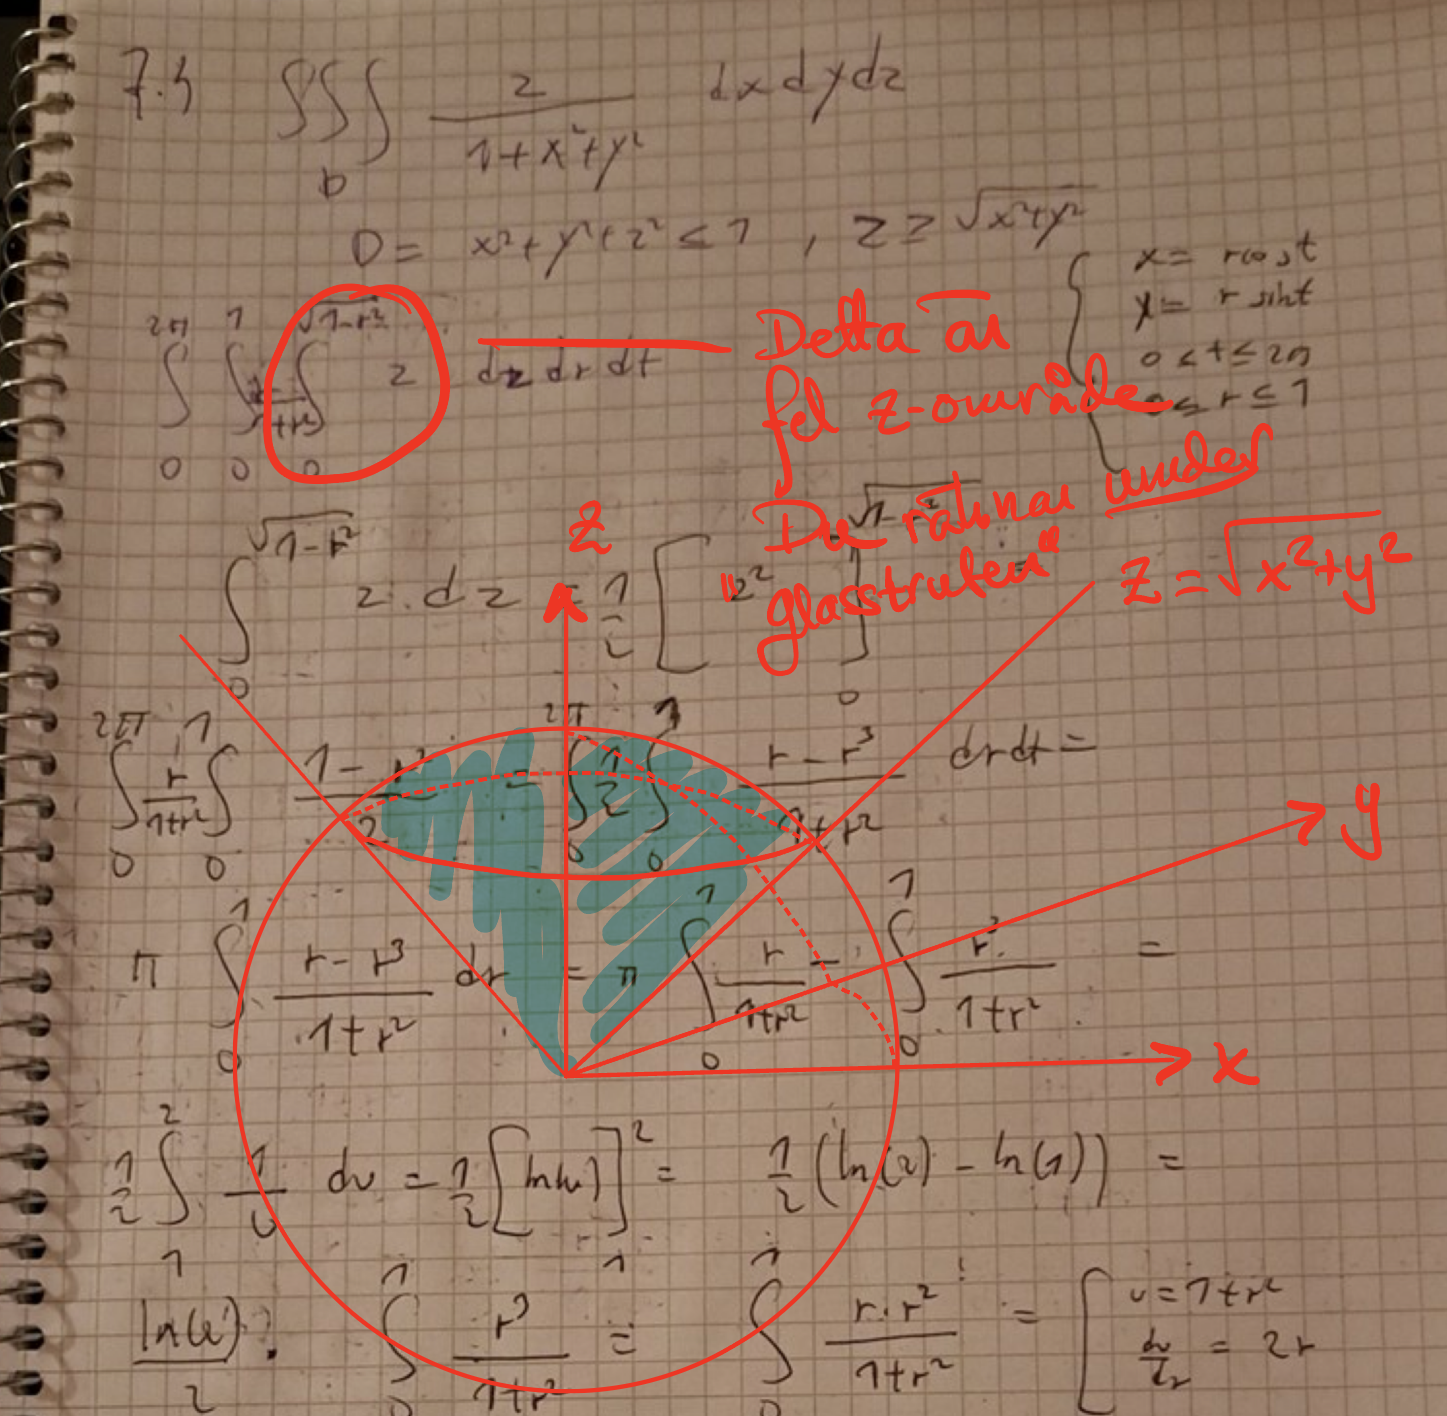 7.4 ∫∫∫_D z/(1+x²+y²) dxdydz
D = x²+y²+z² ≤ 1 , z ≥ √(x²+y²)
{ x = r cos t
y = r sin t
0 ≤ t ≤ 2π
0 ≤ r ≤ 1
∫_0^{2π} ∫_0^1 r/(1+r²) ∫_0^{√(1-r²)} z dz dr dt
Detta är
fel z-område
Du räknar under
"glasstruten"
z = √(x²+y²)
z
∫_0^{√(1-r²)} z · dz = 1/2 [z²]_0^{√(1-r²)}
∫_0^{2π} ∫_0^1 r/(1+r²) (1-r²)/2 = ∫_0^{2π} 1/2 ∫_0^1 (r-r³)/(1+r²) dr dt =
y
π ∫_0^1 (r-r³)/(1+r²) dr = π ∫_0^1 r/(1+r²) - ∫_0^1 r³/(1+r²) =
x
1/2 ∫_1^2 1/u du = 1/2 [ln(u)]_1^2 = 1/2 (ln(2) - ln(1)) =
ln(2)/2 . ∫_0^1 r³/(1+r²) = ∫_0^1 r·r²/(1+r²) = [ u = 1+r²
du/dr = 2r